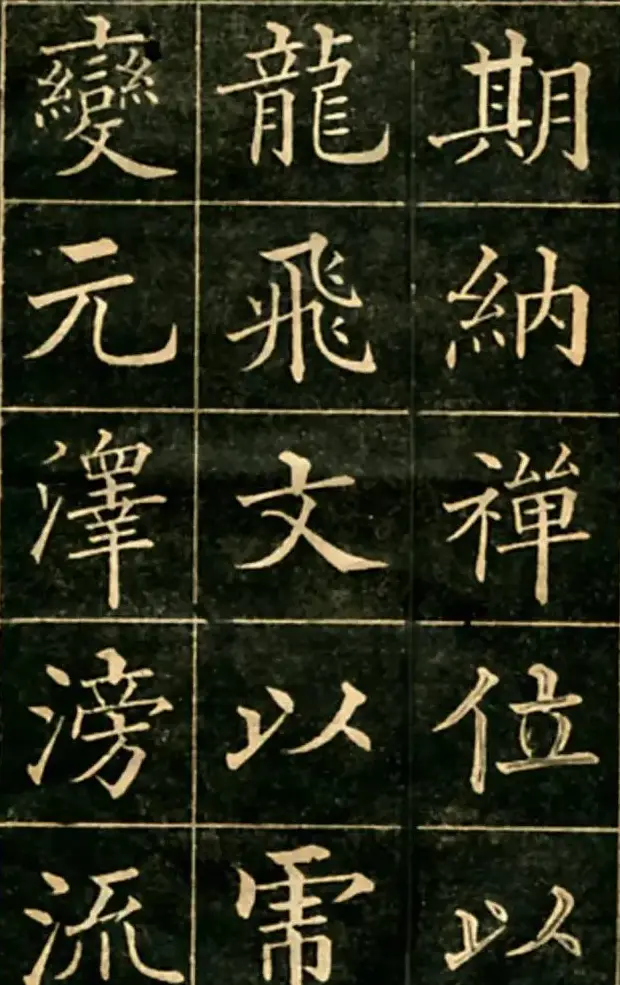 期納禪位以
龍飛文以虎
變元澤滂流